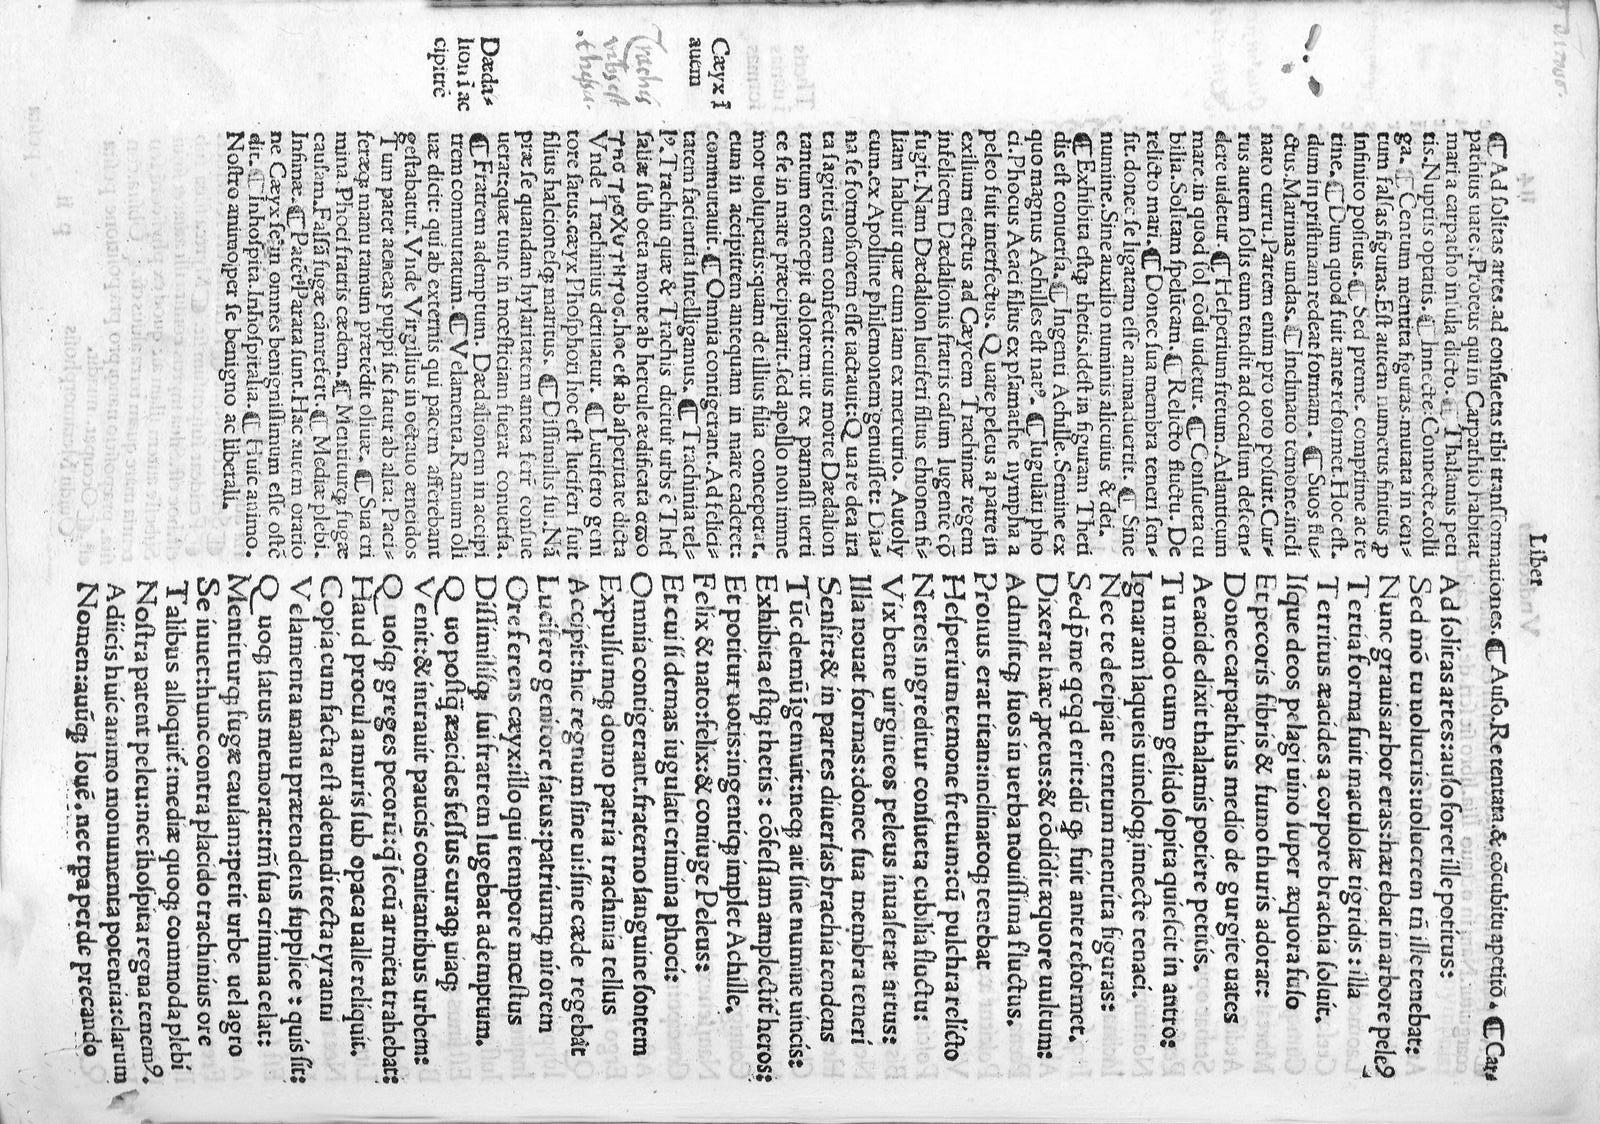 Liber
¶ Ad ſolitas artes.ad conſuetas tibi tranſformationes. ¶ Auſo.Re tentata.& cõcubitu apetitõ. ¶ Car⸗
pathius uate.Proteus qui in Carpathio habitat
maria carpatho inſula dicto. ¶ Thalamis peti
tis.Nuptiis optatis. ¶ Innecte.Connecte.colli
ga. ¶ Centum mentita figuras.mutata in cen⸗
tum falſas figuras.Eſt autem numerus finitus p
infinito poſitus. ¶ Sed preme. comprime ac re
tine. ¶ Dum quod fuit ante reformet.Hoc eſt.
dum in priſtinam redeat formam. ¶ Suos flu⸗
ctus.Marinas undas. ¶ Inclinato temone.incli
nato curru.Partem enim pro toto poſuit.Cur⸗
rus autem ſolis cum tendit ad occaſum deſcen⸗
dere uidetur. ¶ Heſperium fretum.Atlanticum
mare.in quod ſol cõdi uidetur. ¶ Conſueta cu
bilia.Solitam ſpelũcam. ¶ Relicto fluctu.De
relicto mari. ¶ Donec ſua membra teneri ſen⸗
ſit.donec ſe ligatam eſſe animaduertit. ¶ Sine
numine.Sine auxilio numinis alicuius & dei.
¶ Exhibita eſtq; thetis.ideſt in figuram Theti
dis eſt conuerſa. ¶ Ingenti Achille.Semine ex
quo magnus Achilles eſt nat⁹. ¶ Iugulãti pho
ci.Phocus Aeaci filius ex pſamathe nympha a
peleo fuit interfectus. Quare peleus a patre in
exilium eiectus ad Cæycem Trachinæ regem
infelicem Dædalionis fratris caſum lugente cõ
fugit.Nam Dædalion luciferi filius chionen fi⸗
liam habuit quæ cum iam ex mercurio. Autoly
cum.ex Apolline philemonem genuiſſet: Dia⸗
na ſe formoſiorem eſſe iactauit:Qua re dea ira
ta ſagittis eam confecit:cuius morte Dædalion
tantum concepit dolorem:ut ex parnaſſi uerti
ce ſe in mare præcipitarit.ſed apollo non imme
mor uoluptatis:quam de illius filia conceperat.
eum in accipitrem antequam in mare caderet:
commutauit. ¶ Omnia contigerant.Ad felici⸗
tatem facientia intelligamus. ¶ Trachinia tel⸗
l⁹.Trachin quæ & Trachis dicitur urbs ẽ Theſ
ſaliæ ſub oeta monte ab hercule ædificata απο
της τραχυτητος.hoc eſt ab aſperitate dicta
Vnde Trachinius deriuatur. ¶ Lucifero geni
tore ſatus.cæyx Phoſphori hoc eſt luciferi fuit
filius halcioneſq; maritus. ¶ Diſſimilis ſui.Nã
præ ſe quandam hylaritatem antea ferr̃ conſue
uerat:quæ tunc in mœſticiam fuerat conuerſa.
¶ Fratrem ademptum. Dædalionem in accipi
trem commutatum. ¶ Velamenta.Ramum oli
uæ dicit: qui ab externis qui pacem afferebant
geſtabatur.Vnde Virgilius in octauo æneidos
Tum pater aeneas puppi ſic fatur ab alta: Paci⸗
feræq; manu ramum prætẽdit oliuæ. ¶ Sua cri
mina.Phoci fratris cædem. ¶ Mentiturq; fugæ
cauſam.Falſã fugæ cãm refert. ¶ Mediæ plebi.
Infimæ. ¶ Patẽt.Parata ſunt.Hac autem oratio
ne Cæyx ſe in omnes benigniſſimum eſſe oſtẽ
dit. ¶ Inhoſpita.Inhoſpitalia. ¶ Huic animo.
Noſtro animo:per ſe benigno ac liberali.
Cæyx ĩ
auem
Trachis
urbs eſt
theſſa⸗
Dæda⸗
lion ĩ ac
cipitrẽ
Ad ſolitas artes:auſo foret ille potitus:
Sed mõ tu uolucris:uolucrem tñ ille tenebat:
Nunc grauis arbor eras:hærebat in arbore pele⁹
Tertia forma fuit maculoſæ tigridis : illa
Territus æacides a corpore brachia ſoluit.
Iſque deos pelagi uino ſuper æquora fuſo
Et pecoris fibris & fumo thuris adorat:
Donec carpathius medio de gurgite uates
Aeacide dixit thalamis potiere petitis.
Tu modo cum gelido ſopita quieſcit in antro:
Ignaram laqueis uincloq; innecte tenaci.
Nec te decipiat centum mentita figuras:
Sed p̃me qcqd erit:dũ q; fuit ante reformet.
Dixerat hæc pteus:& cõdidit æquore uultum:
Admiſitq; ſuos in uerba nouiſſima fluctus.
Pronus erat titan:inclinatoq; tenebat
Heſperium temone fretum:cũ pulchra relicto
Nereis ingreditur conſueta cubilia fluctu:
Vix bene uirgineos peleus inuaſerat artus:
Illa nouat formas:donec ſua membra teneri
Senſit:& in partes diuerſas brachia tendens
Tũc demũ igemuit:neq; ait ſine numine uincis:
Exhibita eſtq; thetis : cõfeſſam amplectit̃ heros:
Et potitur uotis:ingentiq; implet Achille.
Felix & nato:felix:& coniuge Peleus:
Et cui ſi demas iugulati crimina phoci:
Omnia contigerant.fraterno ſanguine ſontem
Expulſumq; domo patria trachinia tellus
Accipit:hic regnum ſine ui:ſine cæde regebãt
Lucifero genitore ſatus:patriumq; nitorem
Ore ferens cæyx:illo qui tempore mœſtus
Diſſimiliſq; ſui fratrem lugebat ademptum.
Quo poſtq̃ æacides feſſus curaq; uiaq;
Venit:& intrauit paucis comitantibus urbem:
Quoſq; greges pecorũ:q̃ ſecũ armẽta trahebat:
Haud procul a muris ſub opaca ualle reliquit.
Copia cum facta eſt adeundi tecta tyranni
Velamenta manu prætendens ſupplice : quis ſit:
Quoq; ſatus memorat:tm̃ ſua crimina celat:
Mentiturq; fugæ cauſam:petit urbe uel agro
Se iuuet:hunc contra placido trachinius ore
Talibus alloquit̃:mediæ quoq; commoda plebi
Noſtra patent peleu:nec ihoſpita regna tenem⁹.
Adiicis huic animo monumenta potentia:clarum
Nomen:auũq; Iouẽ. nec tpa perde precando